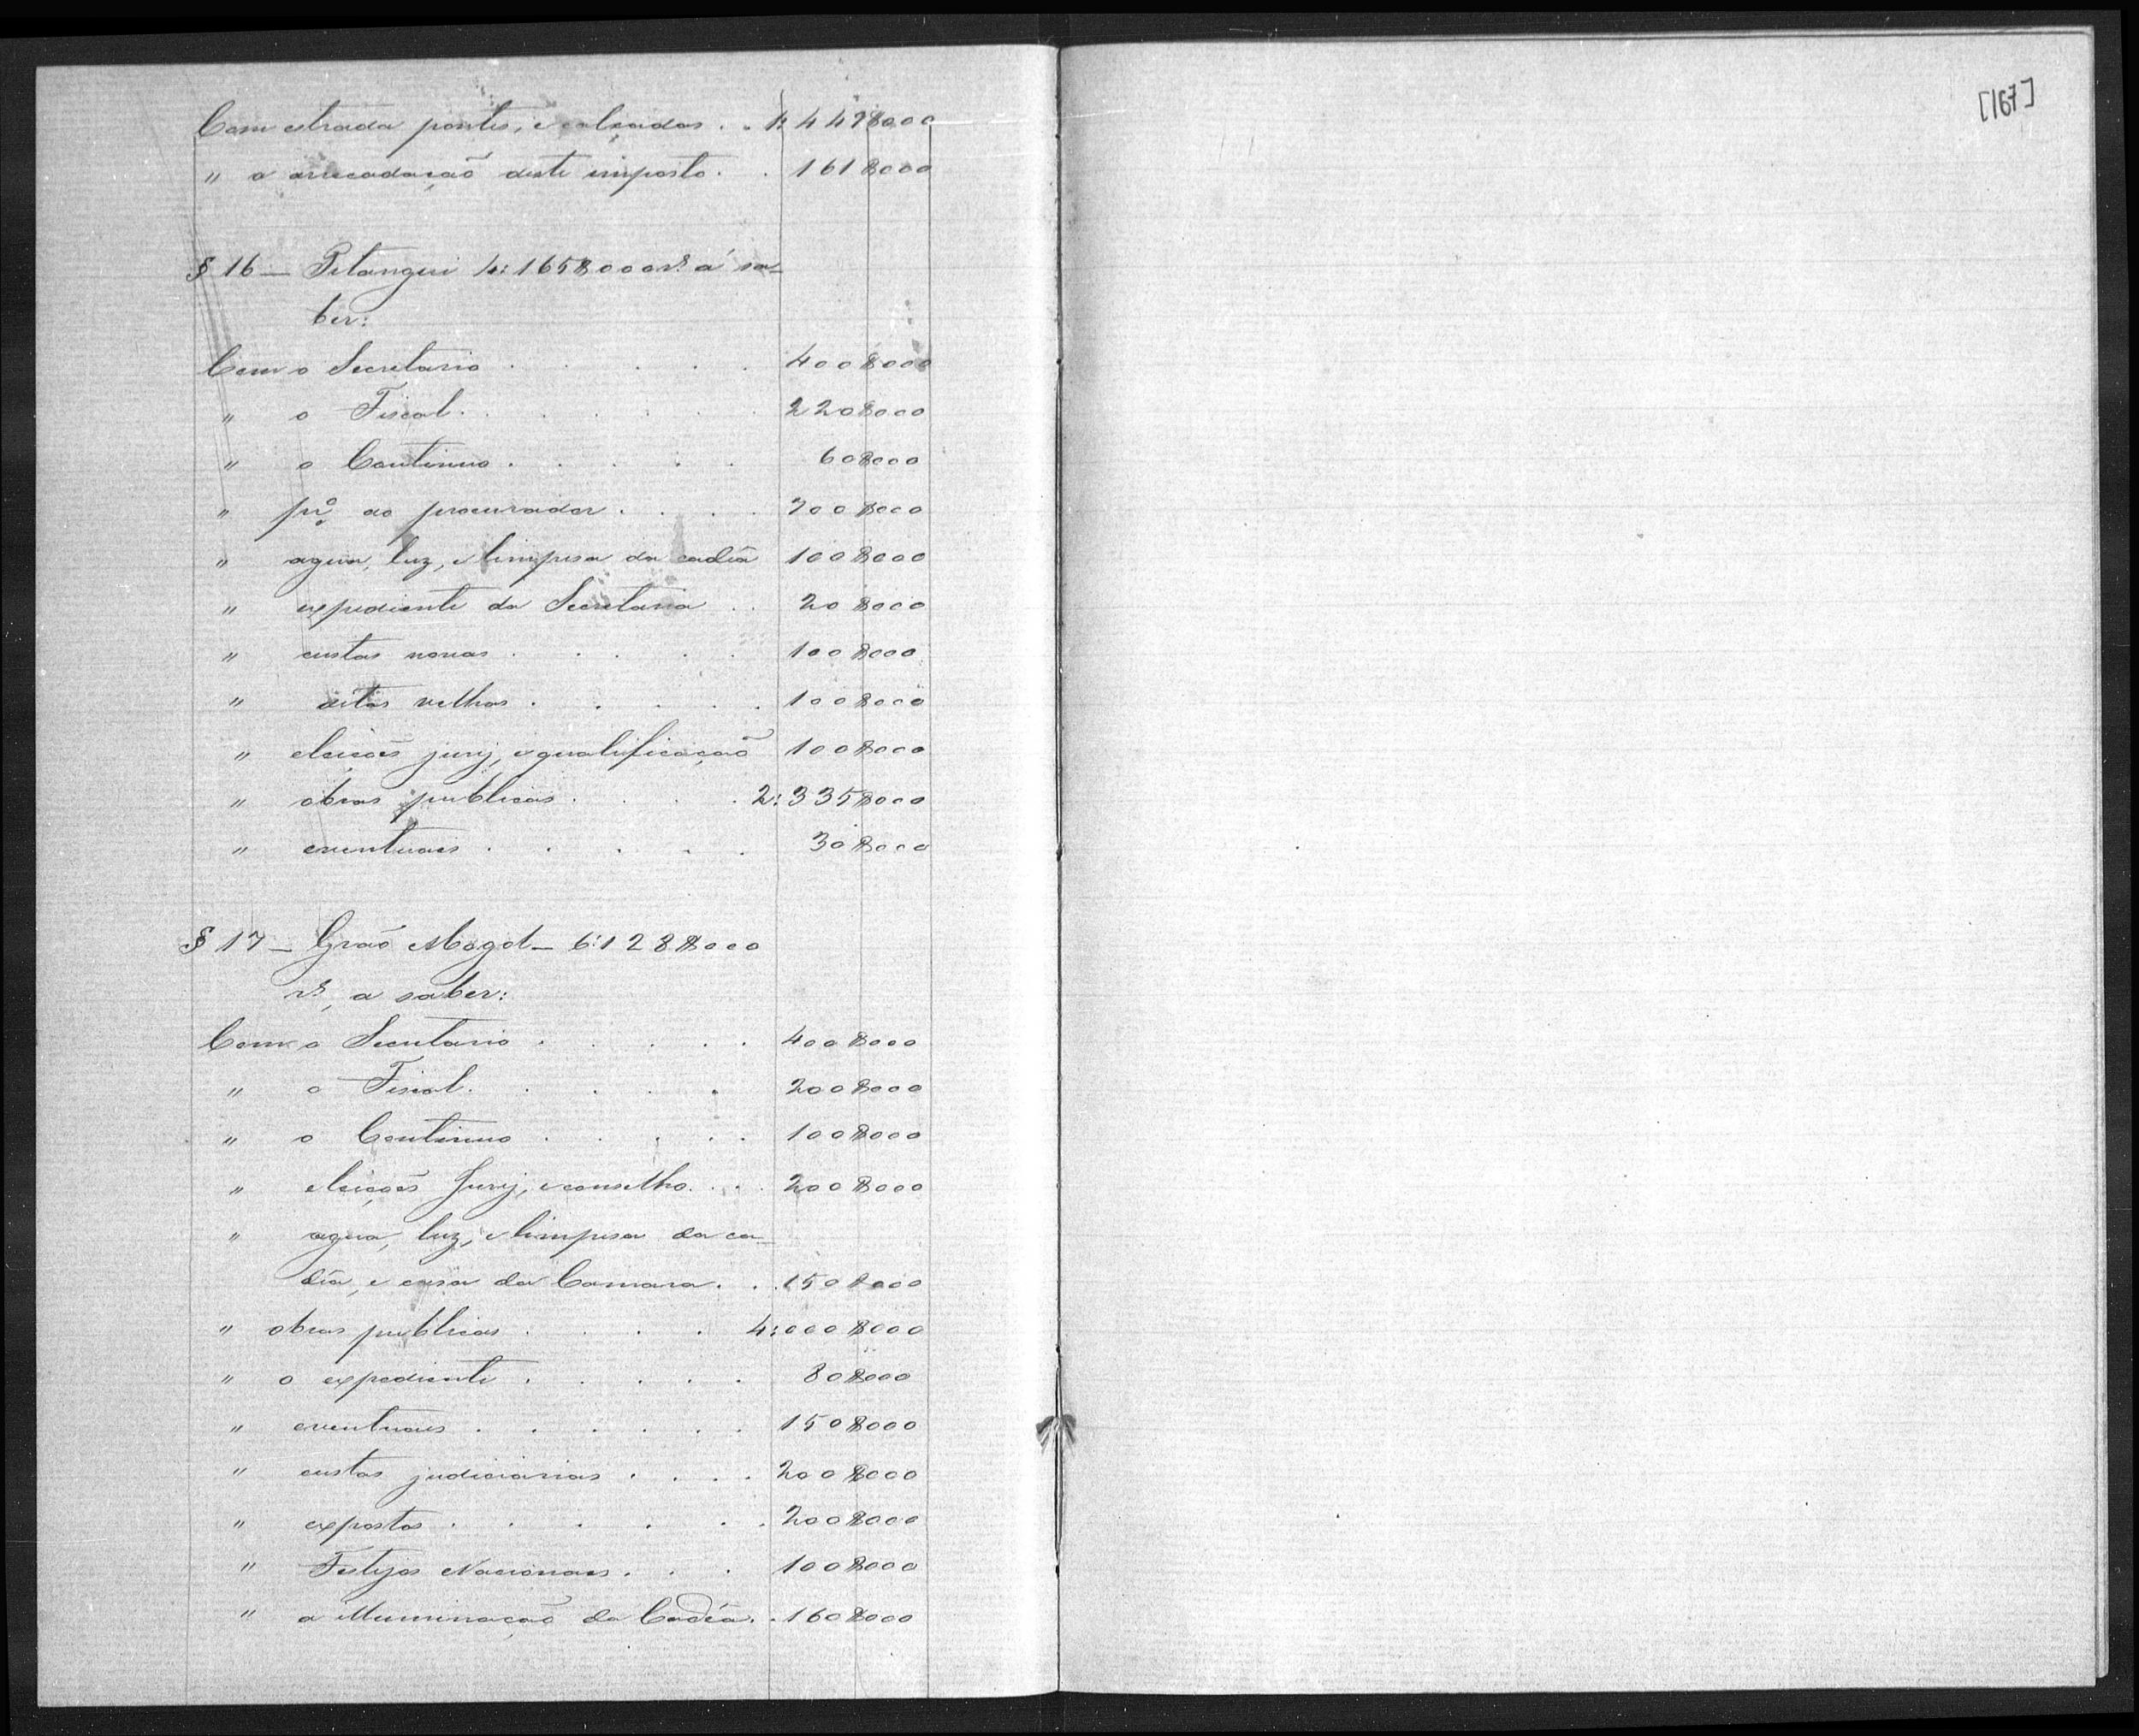 Com estrada pontes, e calçadas . . 1:449$000
" a arrecadação deste imposto . . 161$000
§ 16 — Pitangui 4:165$000 rs. á sa-
ber:
Com o Secretario . . . . . 400$000
" o Fiscal . . . . . 220$000
" o Continuo . . . . . 60$000
" pro. ao procurador . . . . 700$000
" agua, luz, e limpesa da cadêa 100$000
" expediente da Secretaria . . 20$000
" custas novas . . . . . 100$000
" ditas velhas . . . . . 100$000
" eleições jury, e qualificação 100$000
" obras publicas . . . . 2:335$000
" eventuaes . . . . . 30$000
§ 17 — Grão Mogol — 6:128$000
rs., a saber:
Com o Secretario . . . . . 400$000
" o Fiscal . . . . . 200$000
" o Continuo . . . . . 100$000
" eleições Jury, e conselho . . . 200$000
" agua, luz, e limpesa da ca-
dêa, e casa da Camara . . . 150$000
" obras publicas . . . . 4:000$000
" o expediente . . . . . 80$000
" eventuaes . . . . . . 150$000
" custas judiciarias . . . . 200$000
" expostos . . . . . . 200$000
" Festejos Nacionaes . . . 100$000
" a illuminação da Cadêa . . 160$000
[167]